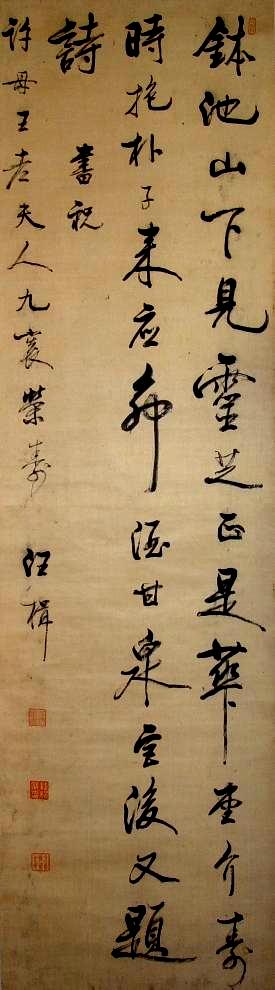 鉢池山下見靈芝正是華堂介壽
時抱朴子来應舜酒甘泉宮後又題
詩 書祝
許母王老夫人九袠榮壽 汪楫